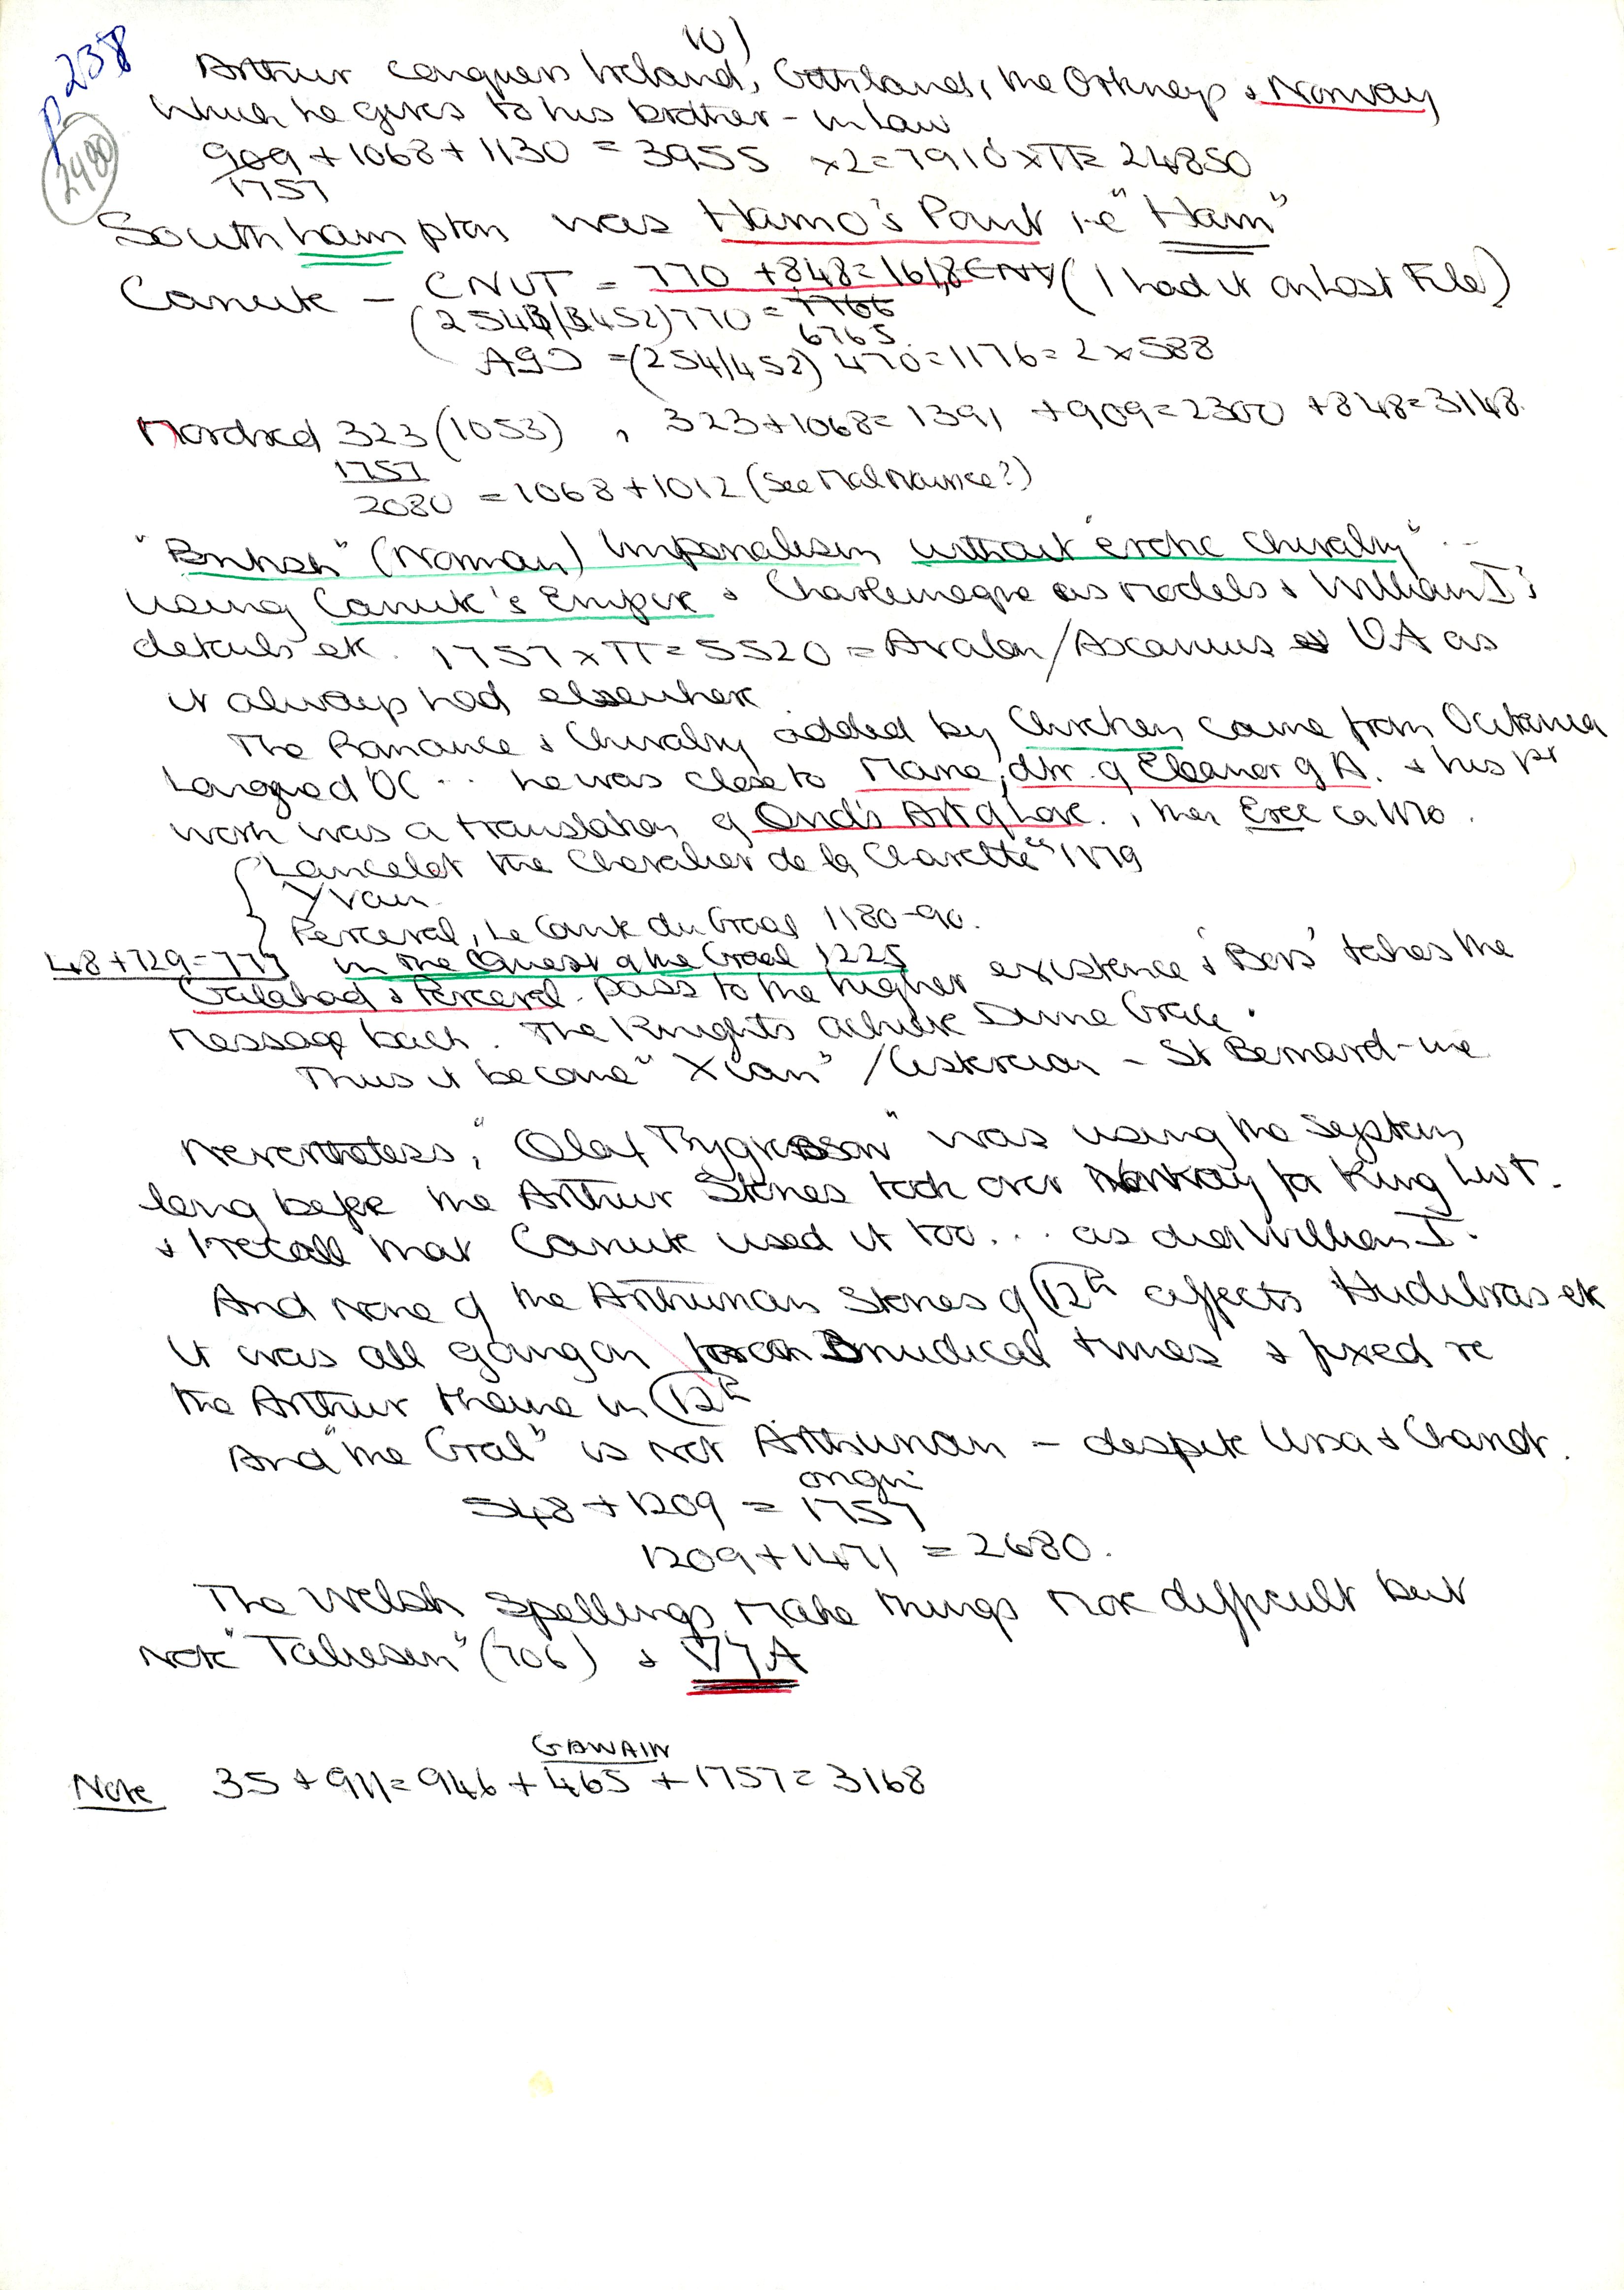 10)
p 238
2400
Arthur conquers Ireland, Gothland, the Orkneys & Norway
which he gives to his brother-in-law
909 + 1068 + 1130 = 3955 x2=7910 xTT= 24850
1757
Southhampton was Hamo's Point i-e "Ham"
Canute — CNUT = 770 +848=1618 (I had it on Lost File)
770 =
6765
= (254/452) 470=1176= 2x588
Mordred 323 (1053) , 323+1068= 1391 +909=2300 +848=3148.
1757
2080 = 1068+1012 (See Mal Maurice?)
"British" (Norman) Imperialism without "erotic chivalry" ...
using Canute's Empire & Charlemagne as models & William I's
details etc. 1757xTT= 5520 = Avalon/Ascanius VA as
it always had elsewhere.
The Romance & Chivalry added by came from Occitania
Langued'OC ... he was close to Marie, dtr. of Eleanor of A. & his 1st
work was a translation of Ovid's Art of Love. , then Erec ca 1170.
Lancelot the Chevalier de la Charette" 1179
Yvain
Perceval, Le Conte du Graal 1180-90.
48+729=777 in the Quest of the Graal 1225
Galahad & Perceval pass to the higher existence & 'Bors' takes the
message back. The Knights achieve Divine Grace.
Thus it became "Xian" / Cistercian - St Bernard-ine
Nevertheless, "Olaf Trygvesson" was using the system
long before the Arthur Stories took over Norway for King Lot.
& I recall that Canute used it too... as did William I.
And none of the Arthurian Stories of 12th affects Hudibras etc
It was all going on times & fixed re
the Arthur theme in 12th
And "the Gral" is not Arthurian — despite Ursa & Chandr.
origin
548 + 1209 = 1757
1209+1471 = 2680.
The Welsh spellings make things more difficult but
note "Taliesin" (706) &
GAWAIN
Note 35 + 911= 946 + 465 +1757= 3168